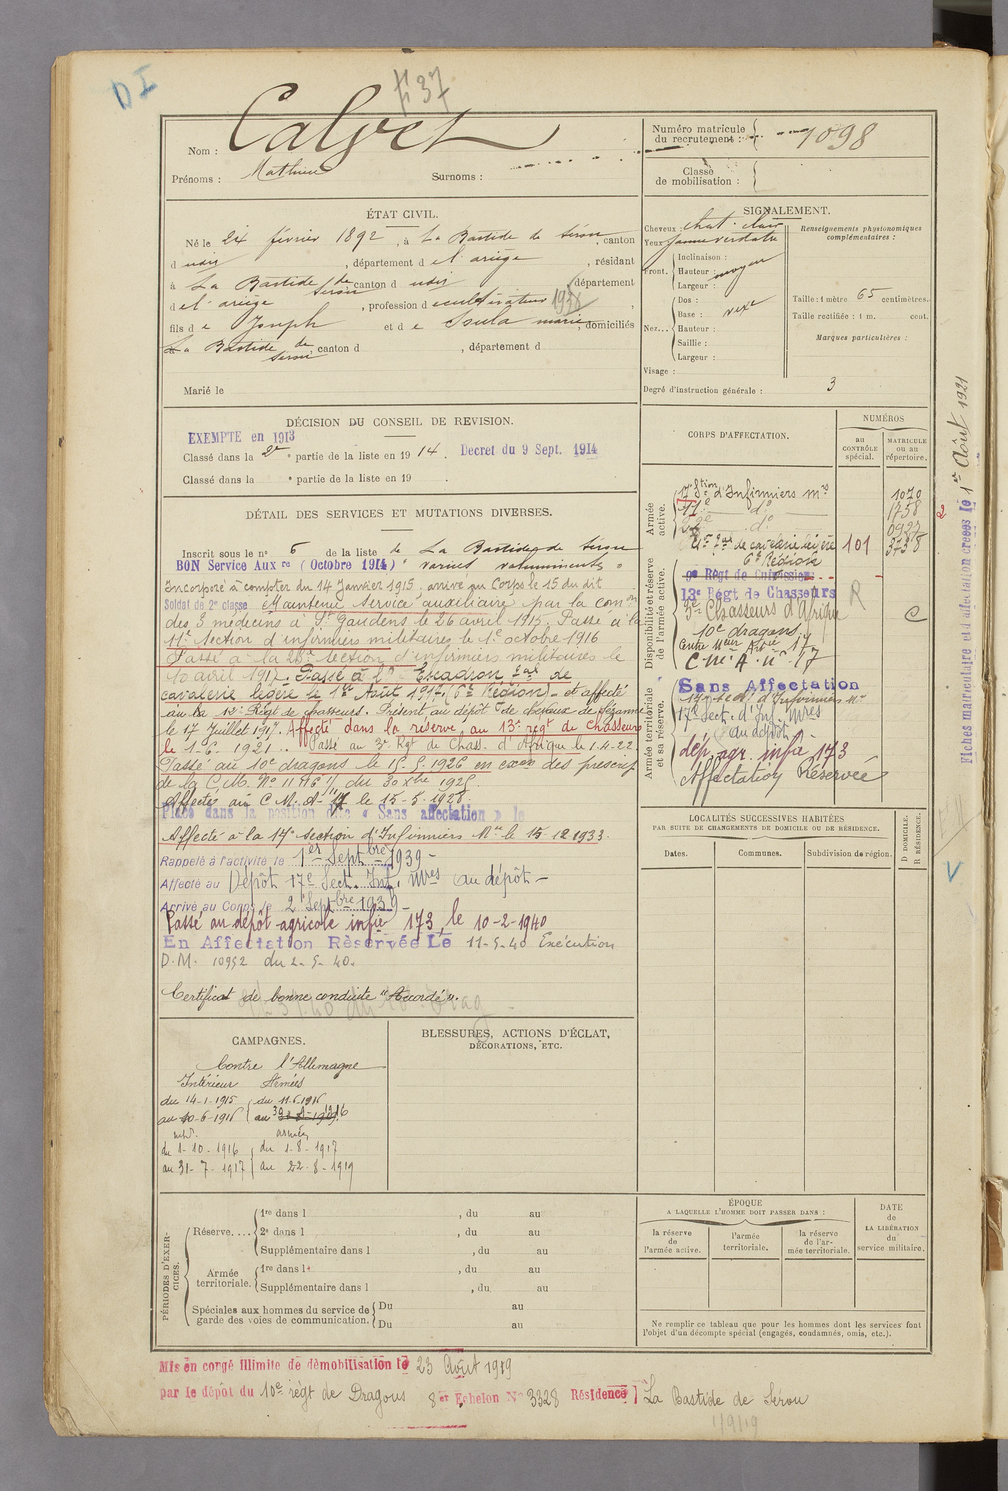 D I
F 37
Nom : Calvet
Prénoms : Mathieu Surnoms :
Numéro matricule du recrutement : 1098
Classe de mobilisation :
ÉTAT CIVIL.
Né le 24 février 1892, à La Bastide de Sérou, canton
d udis, département de l'ariège, résidant
à La Bastide de Sérou canton d udis département
de l'ariège, profession de cultivateur 1938
fils de Joseph et de Soula marie, domiciliés
La Bastide de Sérou, canton d , département d
Marié le
SIGNALEMENT.
Cheveux : chat. clair
Yeux jaune verdatre
Front. Inclinaison :
Hauteur : moyen
Largeur :
Nez... Dos :
Base : vexe
Hauteur :
Saillie :
Largeur :
Visage :
Renseignements physionomiques complémentaires :
Taille : 1 mètre 65 centimètres.
Taille rectifiée : 1 m. cent.
Marques particulières :
Degré d'instruction générale : 3
DÉCISION DU CONSEIL DE REVISION.
EXEMPTE en 1913
Classé dans la 2e partie de la liste en 1914. Decret du 9 Sept. 1914
Classé dans la e partie de la liste en 19
DÉTAIL DES SERVICES ET MUTATIONS DIVERSES.
Inscrit sous le n° 6 de la liste de La Bastide de Sérou
BON Service Auxre (Octobre 1914)
Incorporé à compter du 14 Janvier 1915, arrivé au Corps le 15 du dit
Soldat de 2e classe Maintenu Service auxiliaire par la comon
des 3 médecins à St Gaudens le 26 avril 1915. Passé à la
11e Section d'infirmiers militaires le 1er octobre 1916
Passé à la 23e section d'infirmiers militaires le
10 avril 1917. Passé à l' Escadron de
cavalerie légère le 1er Août 1917. (6e Région) et affecté
au 12e Régt de chasseurs. Présent au dépôt de chevaux de Sézanne
le 17 Juillet 1917. Affecté dans la réserve au 13e régt de Chasseurs
le 1-6. 1921. Passé au 3e Rgt de Chass. d'Afrique le 1.4.22.
Passé au 10e dragons le 15.5.1926 en exon des prescript.
de la C.M. No du 30 Xbre 1925.
Affecté au C.M.A. 17 le 15-5-1928.
Placé dans la position dite « Sans affectation » le
Affecté à la 17e section d'Infirmiers Mres le 15 12 1933
Rappelé à l'activité le 1er Septbre 1939 -
Affecté au Dépôt 17e Sect. Inf. Mres au dépôt -
Arrivé au Corps le 2 Septbre 1939 -
Passé au dépôt agricole infie 173, le 10-2-1940
En Affectation Rèservée Le 11-5-40 Exécution
D.M. 10952 du 2-5-40.
Certificat de bonne conduite "Accordé".
CORPS D'AFFECTATION.
NUMÉROS
au CONTRÔLE spécial.
MATRICULE ou au répertoire.
Armée active.
17e Stion d'Infirmiers mres 1070
11e d° 1758
23e d°
de cavalerie légère 101 3738
6e Région
Disponibilité et réserve de l'armée active.
9e Régt de Cuirassiers
13e Régt de Chasseurs R
3e Chasseurs d'Afrique C
10e dragons
C.M.A. n° 17
Armée territoriale et sa réserve.
Sans Affectation
17e Section d'Infirmiers Mres
17e Sect. d'Inf. Mres
(au dépôt)
dép. agr. infie 173
Affectation Réservée
Fiches matriculaire et d'affectation créées le 1er Août 1921
2
V
LOCALITÉS SUCCESSIVES HABITÉES
PAR SUITE DE CHANGEMENTS DE DOMICILE OU DE RÉSIDENCE.
Dates. Communes. Subdivision de région. D DOMICILE. R RÉSIDENCE.
CAMPAGNES.
Contre l'Allemagne
Intérieur Armées
du 14-1-1915 du 11.6.1916
au 10-6-1916 au 30-9-1916
intr. armées
du 1-10-1916 du 1-8-1917
au 31-7-1917 au 22-8-1919
BLESSURES, ACTIONS D'ÉCLAT,
DÉCORATIONS, ETC.
PÉRIODES D'EXERCICES.
Réserve.... 1re dans l , du au
2e dans l , du au
Supplémentaire dans l , du au
Armée territoriale. 1re dans l , du au
Supplémentaire dans l , du au
Spéciales aux hommes du service de garde des voies de communication. Du au
Du au
ÉPOQUE
A LAQUELLE L'HOMME DOIT PASSER DANS :
la réserve de l'armée active.
l'armée territoriale.
la réserve de l'armée territoriale.
DATE de LA LIBÉRATION du service militaire.
Ne remplir ce tableau que pour les hommes dont les services font
l'objet d'un décompte spécial (engagés, condamnés, omis, etc.).
Mis en congé illimité de démobilisation le 23 Août 1919
par le dépôt du 10e régt de Dragons 8e Echelon N° 3328 Résidence La Bastide de Sérou
1/9/19